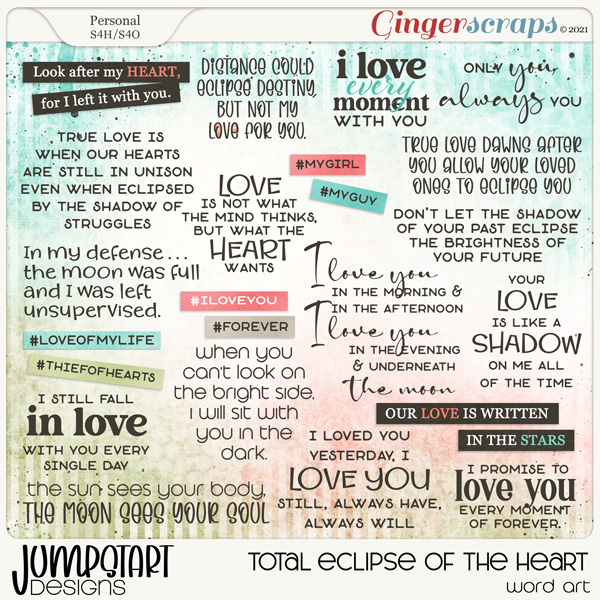 Personal
S4H/S4O
Gingerscraps ©2021
Look after my HEART,
for I left it with you.
DISTANCE COULD
ECLIPSE DESTINY,
BUT NOT MY
LOVE FOR YOU.
i love
every
moment
WITH YOU
ONLY you,
always YOU
TRUE LOVE IS
WHEN OUR HEARTS
ARE STILL IN UNISON
EVEN WHEN ECLIPSED
BY THE SHADOW OF
STRUGGLES
#MYGIRL
#MYGUY
TRUE LOVE DAWNS AFTER
YOU ALLOW YOUR LOVED
ONES TO ECLIPSE YOU
LOVE
IS NOT WHAT
THE MIND THINKS,
BUT WHAT THE
HEART
WANTS
DON'T LET THE SHADOW
OF YOUR PAST ECLIPSE
THE BRIGHTNESS OF
YOUR FUTURE
In my defense...
the moon was full
and I was left
unsupervised.
I love you
IN THE MORNING &
IN THE AFTERNOON
I love you
IN THE EVENING
& UNDERNEATH
the moon
YOUR
LOVE
IS LIKE A
SHADOW
ON ME ALL
OF THE TIME
#ILOVEYOU
#FOREVER
#LOVEOFMYLIFE
#THIEFOFHEARTS
when you
can't look on
the bright side,
I will sit with
you in the
dark.
I STILL FALL
in love
WITH YOU EVERY
SINGLE DAY
OUR LOVE IS WRITTEN
IN THE STARS
I LOVED YOU
YESTERDAY, I
LOVE YOU
STILL, ALWAYS HAVE,
ALWAYS WILL
I PROMISE TO
love you
EVERY MOMENT
OF FOREVER.
the sun sees your body,
THE MOON SEES YOUR SOUL
JUMPSTART
DESIGNS
TOTAL ECLIPSE OF THE HEART
word art